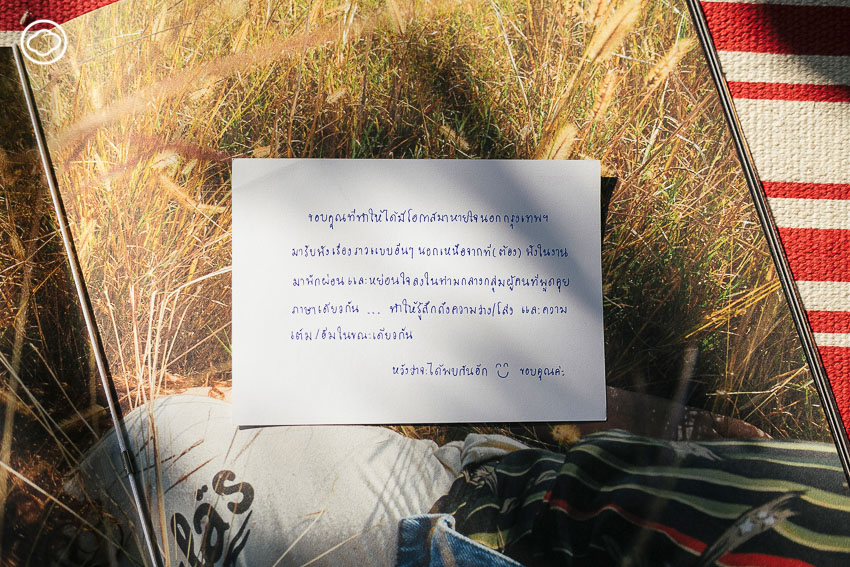 ขอบคุณที่ทำให้ได้มีโอกาสมาหายใจนอกกรุงเทพฯ
มารับฟังเรื่องราวแบบอื่นๆ นอกเหนือจากที่(ต้อง) ฟังในงาน
มาพักผ่อน และหย่อนใจลงในท่ามกลางกลุ่มผู้คนที่พูดคุย
ภาษาเดียวกัน ... ทำให้รู้สึกถึงความว่าง/โล่ง และความ
เต็ม/อิ่มในขณะเดียวกัน
หวังว่าจะได้พบกันอีก ขอบคุณค่ะ